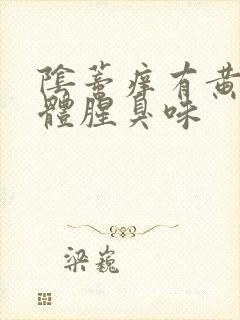 陰蒂癢有黃
體腥臭味
梁巍